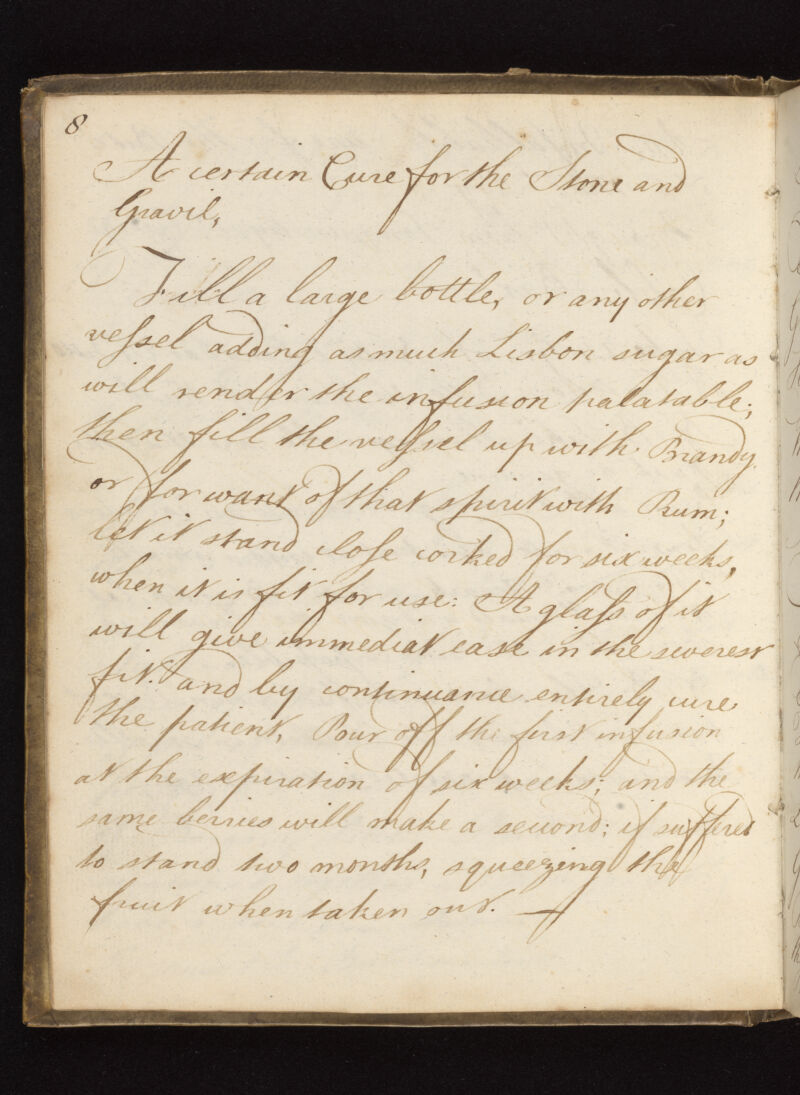 8
A certain Cure for the Stone and
Gravil,
Fill a large bottle, or any other
veſsel adding as much Lisbon sugar as
will render the infusion palatable;
then fill the veſsel up with Brandy
or for want of that spirit with Rum;
let it stand cloſe corked for six weeks,
when it is fit for use: A glaſs of it
will give immediat ease in the severest
fit. and by continuance entirely cure
the patient, Pour off the first infusion
at the expiration of six weeks; and the
same berries will make a second; if suffered
to stand two months, squeezing the
fruit when taken out. —